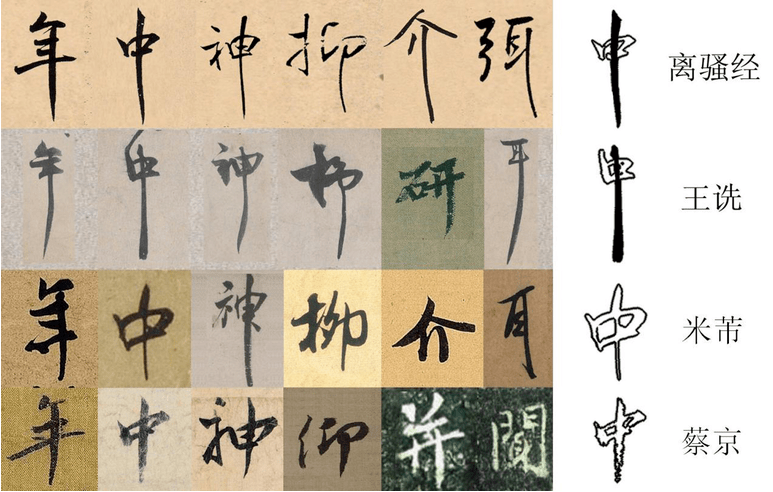 年 中 神 抑 介 弭 中 离骚经
年 中 神 柳 研 耳 中 王诜
年 中 神 柳 介 耳 中 米芾
年 中 神 仰 并 闻 中 蔡京